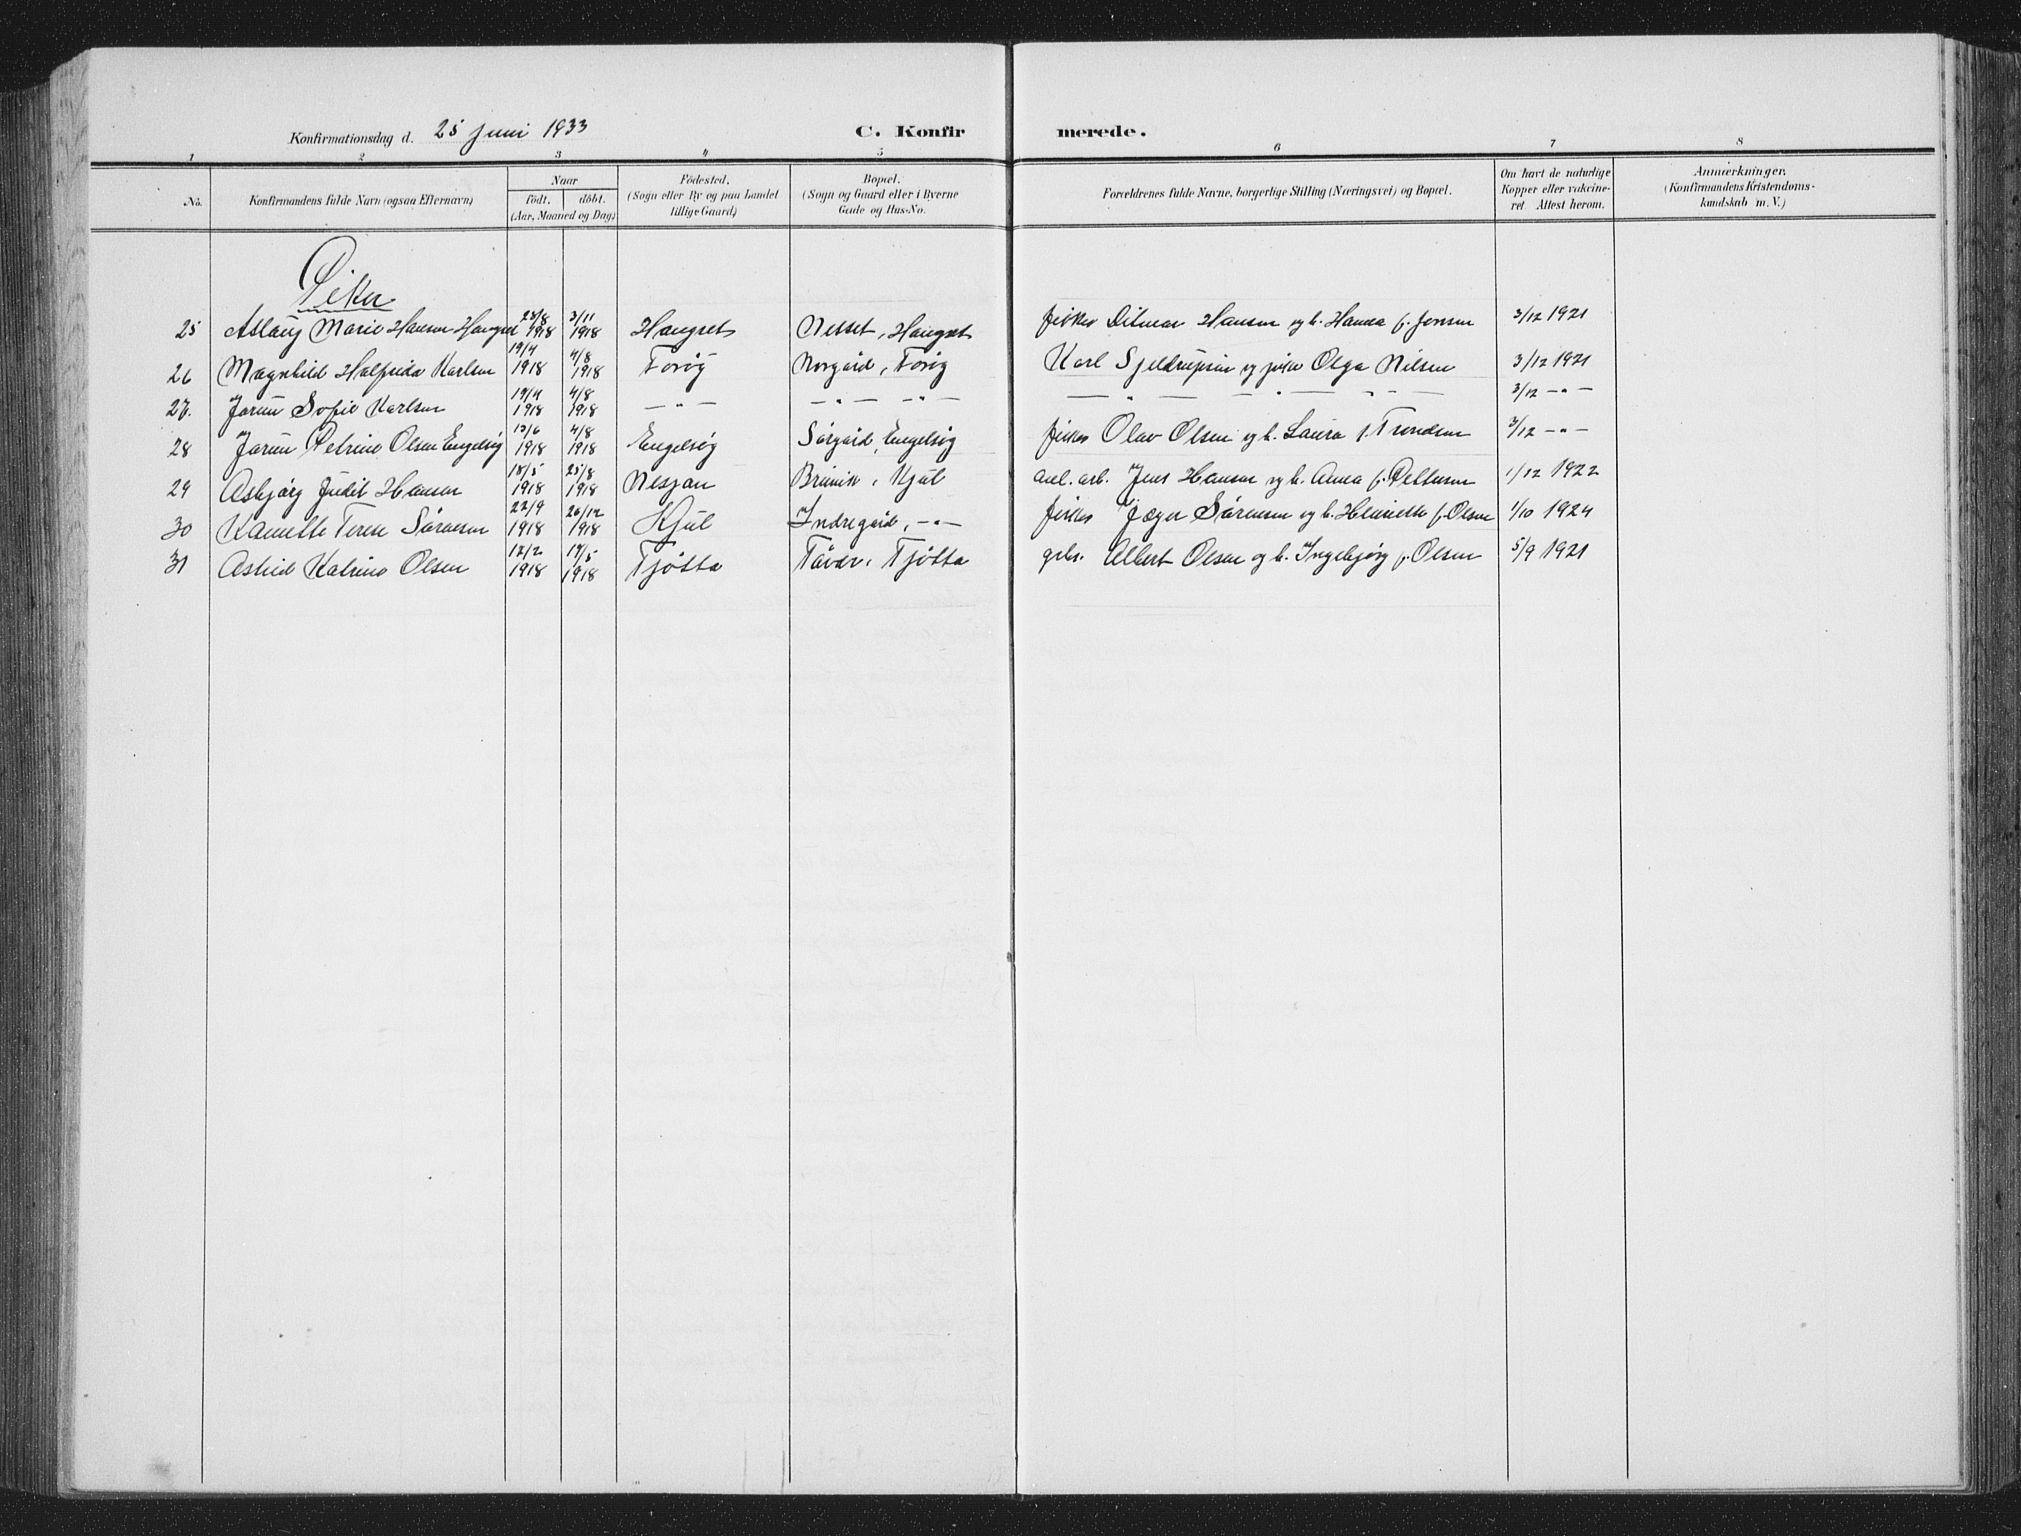 Konfirmationsdag d. 25 juni 1933 C. Konfir merede.
1 2 3 4 5 6 7 8
No. Konfirmandens fulde Navn (ogsaa Efternavn) Naar født. døbt. (Aar, Maaned og Dag) Fødested. (Sogn eller By og paa Landet tillige Gaard) Bopæl. (Sogn og Gaard eller i Byerne Gade og Hus-No. Forældrenes fulde Navne, borgerlige Stilling (Næringsvei) og Bopæl. Om havt de naturlige Kopper eller vakcineret Attest herom. Anmærkninger. (Konfirmandens Kristendomskundskab m. V.)
Piker
25 Aslaug Marie Hansen Haugset 23/8 1918 3/11 1918 Haugset Nesset, Haugset fisker Ditmar Hansen og h. Hanna f. Jensen 3/12 1921
26 Magnhild Halfrida Karlsen 19/4 1918 4/8 1918 Forøy Norgård, Forøy Karl Sjeldrupsen og pike Olga Nilsen 3/12 1921
27. Jorun Sofie Karlsen 19/4 1918 4/8 1918 — " — — " — — " — — " — — " — " " — 3/12 — " —
28 Jorun Petrine Olsen Engelsøy 13/6 1918 4/8 1918 Engelsøy Sørgård, Engelsøy fisker Olav Olsen og h. Laura f. Trondsen 3/12 — " —
29 Asbjørg Judit Hansen 18/5 1918 25/8 1918 Nesjan Brünvik, Hjul anl. arb. Jens Hansen og h. Anna f. Pettersen 1/12 1922
30 Kanutte Terese Sørensen 22/9 1918 26/12 1918 Hjul Indregård, — " — fisker Jæger Sørensen og h. Henriette f. Olsen 1/10 1924
31 Astrid Katrine Olsen 12/2 1918 19/5 1918 Tjøtta Tåvær, Tjøtta grbr. Albert Olsen og h. Ingebjørg f. Olsen 5/9 1921